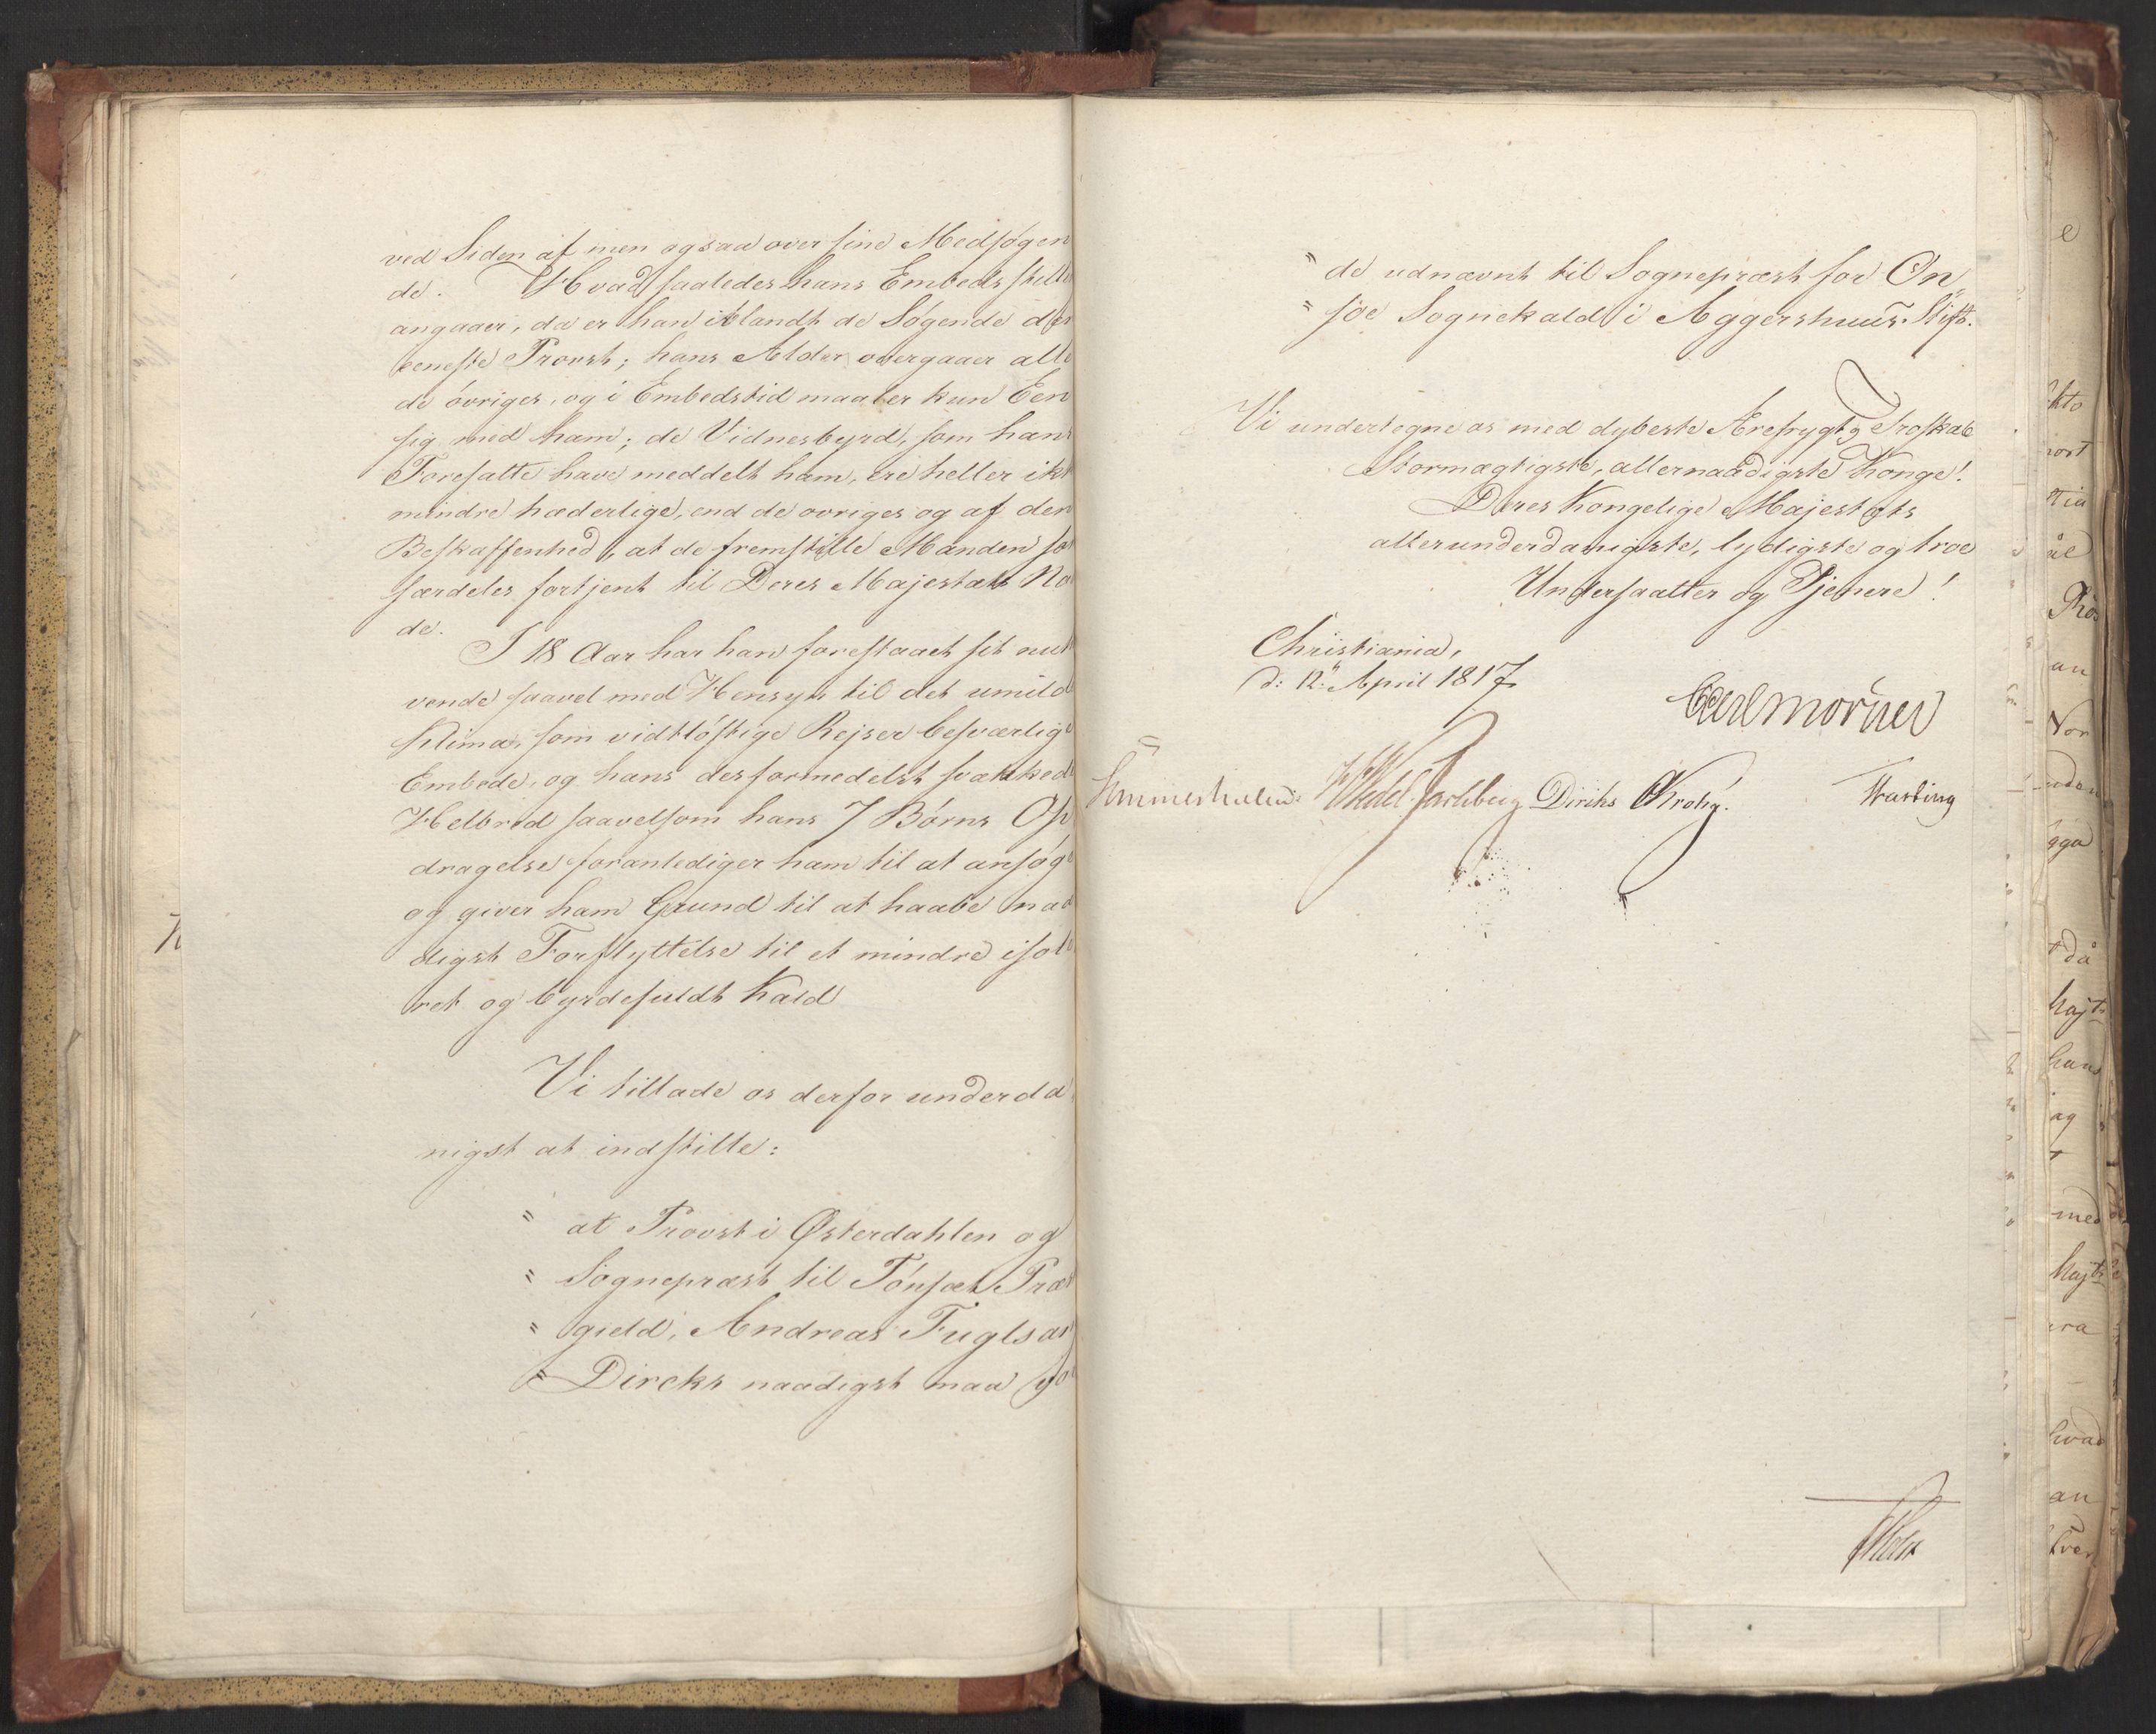 ved Siden af men ogsaa over sine Medsøgen
de. Hvad saaledes hans Embeds stilli
angaaer, da er han iblandt de Søgende den
eeneste Provst; hans Alder overgaaer alle
de øvriges, og i Embedstid maaler kun Een
sig med ham; de Vidnesbyrd, som hans
Foresatte have meddelt ham, ere heller ikke
mindre hæderlige, end de øvriges og af den
Beskaffenhed, at de fremstille Manden so
særdeles fortjent til Deres Majestæts Na
de.
I 18 Aar har han forestaaet sit nu
vende saavel med Hensyn til det umild
Klima, som vidtløftige Rejser besværlige
Embede, og hans desformedelst svækkede
Helbred saavelsom hans 7 Børns Op
dragelse foranlediger ham til at ansøge
og giver ham Grund til at haabe naa
digst Forflyttelse til et mindre isole
ret og byrdefuldt Kald
Vi tillade os derfor underda
nigst at indstille:
" at Provst i Østerdahlen og
" Sognepræst til Tønsæt Præs
" gield, Andreas Fuglsan
" Dircks naadigst maa vo
" de udnævnt til Sognepræst for On„
" søe Sognekald i Aggershuus Stift.
Vi undertegne os med dybeste Ærefrygt og Troskab
Stormægtigste, allernaadigste Konge!
Deres Kongelige Majestæts
allerunderdanigste, lydigste og troe
Undersaatter og Tjenere!
Christiania,
d: 12 April 1817
Carl Mörner
Sommerhielm HWedel Jarlsberg Diriks Krohg. Treschow
Holst